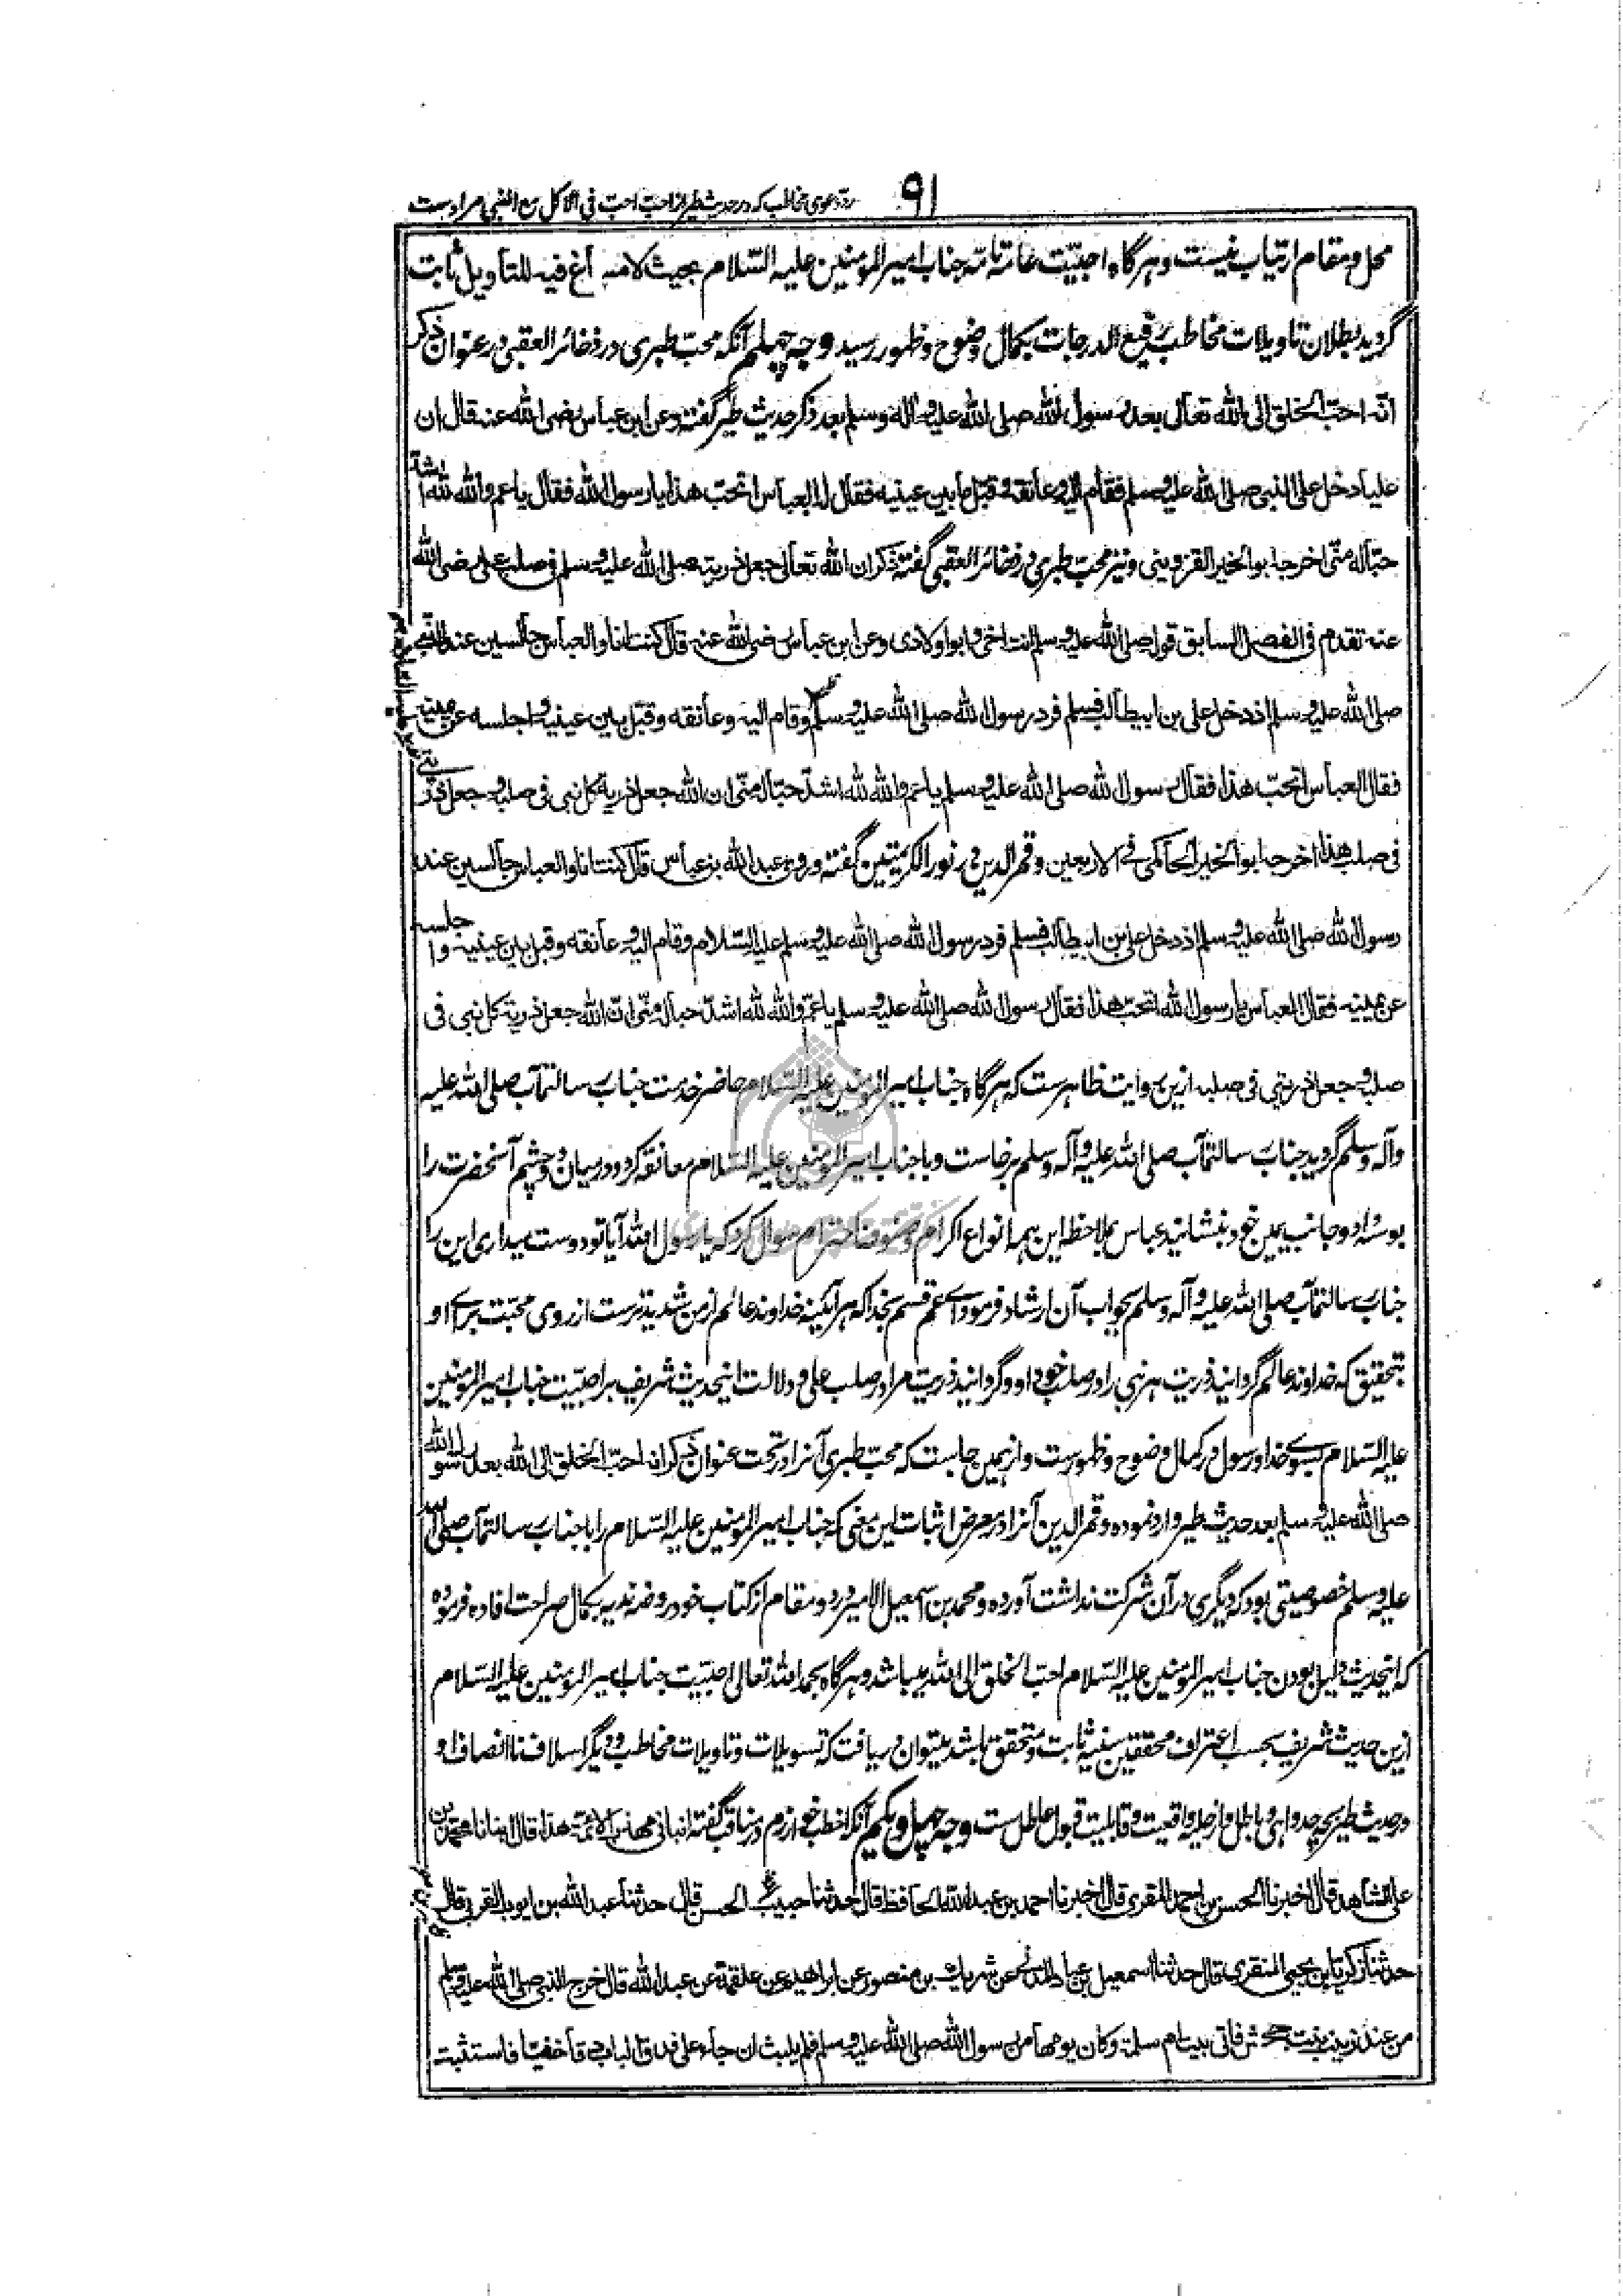 ۹۱
رد دعوی مخاطب که در حدیث طیر از احب احب فی الاکل مع النبی مرادست
محل و مقام ارتیاب نیست و هرگاه احبیّت عامّه تامّه جناب امیر المومنین علیه السّلام بحیث لا مساغ فیه للتأویل ثابت
گردید بطلان تاویلات مخاطب رفیع الدرجات بکمال وضوح و ظهور رسید وجه چهلم آنکه محب طبری در ذخائر العقبی در عنوان ذکر
انّه احبّ الخلق الی الله تعالی بعد رسول الله صلی الله علیه و آله وسلم بعد ذکر حدیث طیر گفته و عن ابن عباس رضی الله عنه قال ان
علیا دخل علی النبی صلی الله علیه وسلم فقام الیه و عانقه و قبّل ما بین عینیه فقال له العباس اتحبّ هذا یا رسول الله فقال یا عم والله لله اشدّ
حبّا له منّی اخرجه ابو الخیر القزوینی و نیز محب طبری در ذخائر العقبی گفته ذکر ان الله تعالی جعل ذریته صلی الله علیه وسلم فی صلب علی رضی الله
عنه تقدم فی الفصل السابق قوله صلی الله علیه وسلم انت اخی و ابو اولادی و عن ابن عباس رضی الله عنه قال کنت انا والعباس جالسین عند النبی
صلی الله علیه وسلم اذ دخل علی بن ابیطالب فسلم فرد رسول الله صلی الله علیه وسلم علیه و قام الیه و عانقه و قبّل بین عینیه و اجلسه عن یمینه
فقال العباس اتحبّ هذا فقال رسول الله صلی الله علیه وسلم یا عم والله لله اشدّ حبّا له منّی ان الله جعل ذریة کل نبی فی صلبه و جعل ذریّتی
فی صلب هذا اخرجه ابو الخیر الحاکمی فی الاربعین و قمر الدین در نور الکریمتین گفته و روی عبدالله بن عباس قال کنت انا والعباس جالسین عند
رسول الله صلی الله علیه وسلم اذ دخل علی بن ابیطالب فسلم فرد رسول الله صلی الله علیه وسلم علیه السّلام و قام الیه و عانقه و قبل بین عینیه و اجلسه
عن یمینه فقال العباس یا رسول الله اتحب هذا فقال رسول الله صلی الله علیه وسلم یا عم والله لله اشدّ حبا له منّی انّ الله جعل ذریة کل نبی فی
صلبه و جعل ذریتی فی صلبه ازین روایت ظاهرست که هرگاه جناب امیر المومنین علیه السّلام حاضر خدمت جناب رسالتمآب صلی الله علیه
وآله وسلم گردید جناب رسالتمآب صلی الله علیه وآله وسلم برخاست و با جناب امیر المومنین علیه السّلام معانقه کرد و درمیان دو چشم آنحضرت را
بوسه داد و جانب یمین خود بنشانید عباس بملاحظه این همه انواع اکرام و صنوف احترام سوال کرد که یا رسول الله آیا تو دوست میداری این را
جناب رسالتمآب صلی الله علیه وآله وسلم بجواب آن ارشاد فرمود ای عم قسم بخدا که هر آئینه خداوند عالم از من شدیدترست از روی محبّت برای او
بتحقیق که خداوند عالم گردانید ذریت هر نبی را در صلب خود او و گردانید ذریت مرا در صلب علی و دلالت اینحدیث شریف بر احبّیت جناب امیر المومنین
علیه السّلام بسوی خدا و رسول در کمال وضوح و ظهورست و ازهمین جاست که محب طبری آنرا در تحت عنوان ذکر انه احب الخلق الی الله بعد رسول الله
صلی الله علیه وسلم بعد حدیث طیر وارد نموده و قمر الدین آنرا در معرض اثبات این معنی که جناب امیر المومنین علیه السّلام را با جناب رسالتمآب صلی الله
علیه وسلم خصوصیتی بود که دیگری در آن شرکت نداشت آورده و محمد بن اسمعیل الامیر در دو مقام از کتاب خود روضه ندیه بکمال صراحت افاده فرموده
که اینحدیث دلیل بودن جناب امیر المومنین علیه السّلام احبّ الخلق الی الله میباشد و هرگاه بحمد الله تعالی احبّیت جناب امیر المومنین علیه السّلام
ازین حدیث شریف بحسب اعتراف محققین سنیه ثابت و متحقق باشد میتوان دریافت که تسویلات و تاویلات مخاطب و دیگر اسلاف ناانصاف او
در حدیث طیر بچه حد واهی و باطل و از حلیه واقعیت و قابلیت قبول عاطل ست وجه چهل و یکم آنکه اخطب خوارزم در مناقب گفته انبانی مهذب الائمة هذا قال انبانا محمد بن
علی الشاهد قال اخبرنا الحسن بن احمد المقری قال اخبرنا احمد بن عبدالله الحافظ قال حدثنا حبیب بن الحسن قال حدثنا عبدالله بن ایوب القربی قال
حدثنا زکریا بن یحیی المنقری قال حدثنا اسمعیل بن عباد المدنی عن شریک بن منصور عن ابراهیم عن علقمة عن عبدالله قال خرج النبی صلی الله علیه وسلم
من عند زینب بنت جحش فاتی بیت ام سلمة و کان یومها من رسول الله صلی الله علیه وسلم فلم یلبث ان جاء علی فدق الباب دقا خفیا فاستثبته